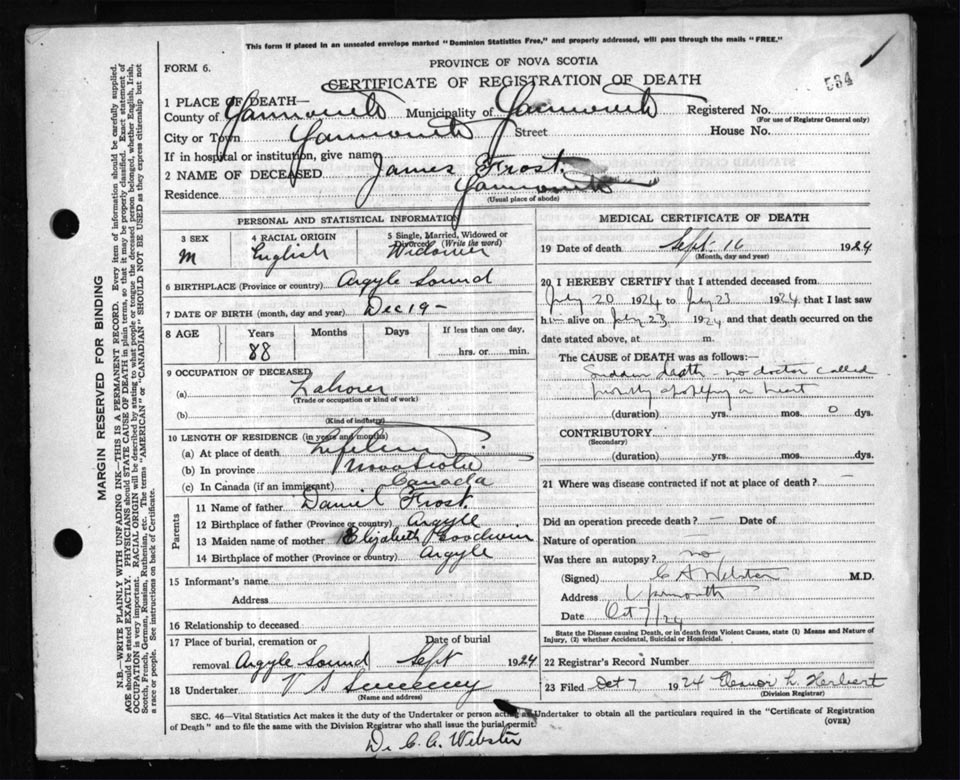 This form if placed in an unsealed envelope marked "Dominion Statistics Free," and properly addressed, will pass through the mails "FREE."
FORM 6.
PROVINCE OF NOVA SCOTIA
CERTIFICATE OF REGISTRATION OF DEATH
564
1 PLACE OF DEATH—
County of Yarmouth Municipality of Yarmouth Registered No.
(For use of Registrar General only)
City or Town Yarmouth Street House No.
If in hospital or institution, give name
2 NAME OF DECEASED James Frost.
Residence Yarmouth
(Usual place of abode)
PERSONAL AND STATISTICAL INFORMATION
3 SEX 4 RACIAL ORIGIN 5 Single, Married, Widowed or Divorced (Write the word)
M English Widower
6 BIRTHPLACE (Province or country) Argyle Sound
7 DATE OF BIRTH (month, day and year) Dec 19 -
8 AGE Years Months Days If less than one day,
88 hrs. or min.
9 OCCUPATION OF DECEASED
(a) Laborer
(Trade or occupation or kind of work)
(b)
(Kind of industry)
10 LENGTH OF RESIDENCE (in years and months)
(a) At place of death Lifetime
(b) In province Nova Scotia
(c) In Canada (if an immigrant) Canada
Parents
11 Name of father Daniel Frost.
12 Birthplace of father (Province or country) Argyle
13 Maiden name of mother Elizabeth Goodwin
14 Birthplace of mother (Province or country) Argyle
15 Informant's name
Address
16 Relationship to deceased
17 Place of burial, cremation or Date of burial
removal Argyle Sound Sept 1924
18 Undertaker V S Sweeney
(Name and address)
MEDICAL CERTIFICATE OF DEATH
19 Date of death Sept. 16 1924
(Month, day and year)
20 I HEREBY CERTIFY that I attended deceased from
July 20 1924 to July 23 1924 that I last saw
him alive on July 23 1924 and that death occurred on
date stated above, at m.
The CAUSE of DEATH was as follows:—
Sudden death - no doctor called
probably apoplexy or heart
(duration) yrs. mos. 0 dys.
CONTRIBUTORY
(Secondary)
(duration) yrs. mos. dys.
21 Where was disease contracted if not at place of death? —
Did an operation precede death? — Date of
Nature of operation —
Was there an autopsy? no
(Signed) C A Webster M.D.
Address Yarmouth
Date Oct 7/24
State the Disease causing Death, or in death from Violent Causes, state (1) Means and Nature of
Injury, (2) whether Accidental, Suicidal or Homicidal.
22 Registrar's Record Number
23 Filed Oct 7 1924 Eleanor L. Herbert
(Division Registrar)
SEC. 46—Vital Statistics Act makes it the duty of the Undertaker or person acting as Undertaker to obtain all the particulars required in the "Certificate of Registration
of Death" and to file the same with the Division Registrar who shall issue the burial permit. (OVER)
Dr C. A. Webster
MARGIN RESERVED FOR BINDING
N.B.—WRITE PLAINLY WITH UNFADING INK—THIS IS A PERMANENT RECORD. Every item of information should be carefully supplied.
AGE should be stated EXACTLY. PHYSICIANS should STATE CAUSE OF DEATH in plain terms, so that it may be properly classified. Exact statement of
OCCUPATION is very important. RACIAL ORIGIN will be described by stating to what people or tongue the deceased person belonged, whether English, Irish,
Scotch, French, German, Russian, Ruthenian, etc. The terms "AMERICAN" or "CANADIAN" SHOULD NOT BE USED as they express citizenship but not
a race or people. See instructions on back of Certificate.